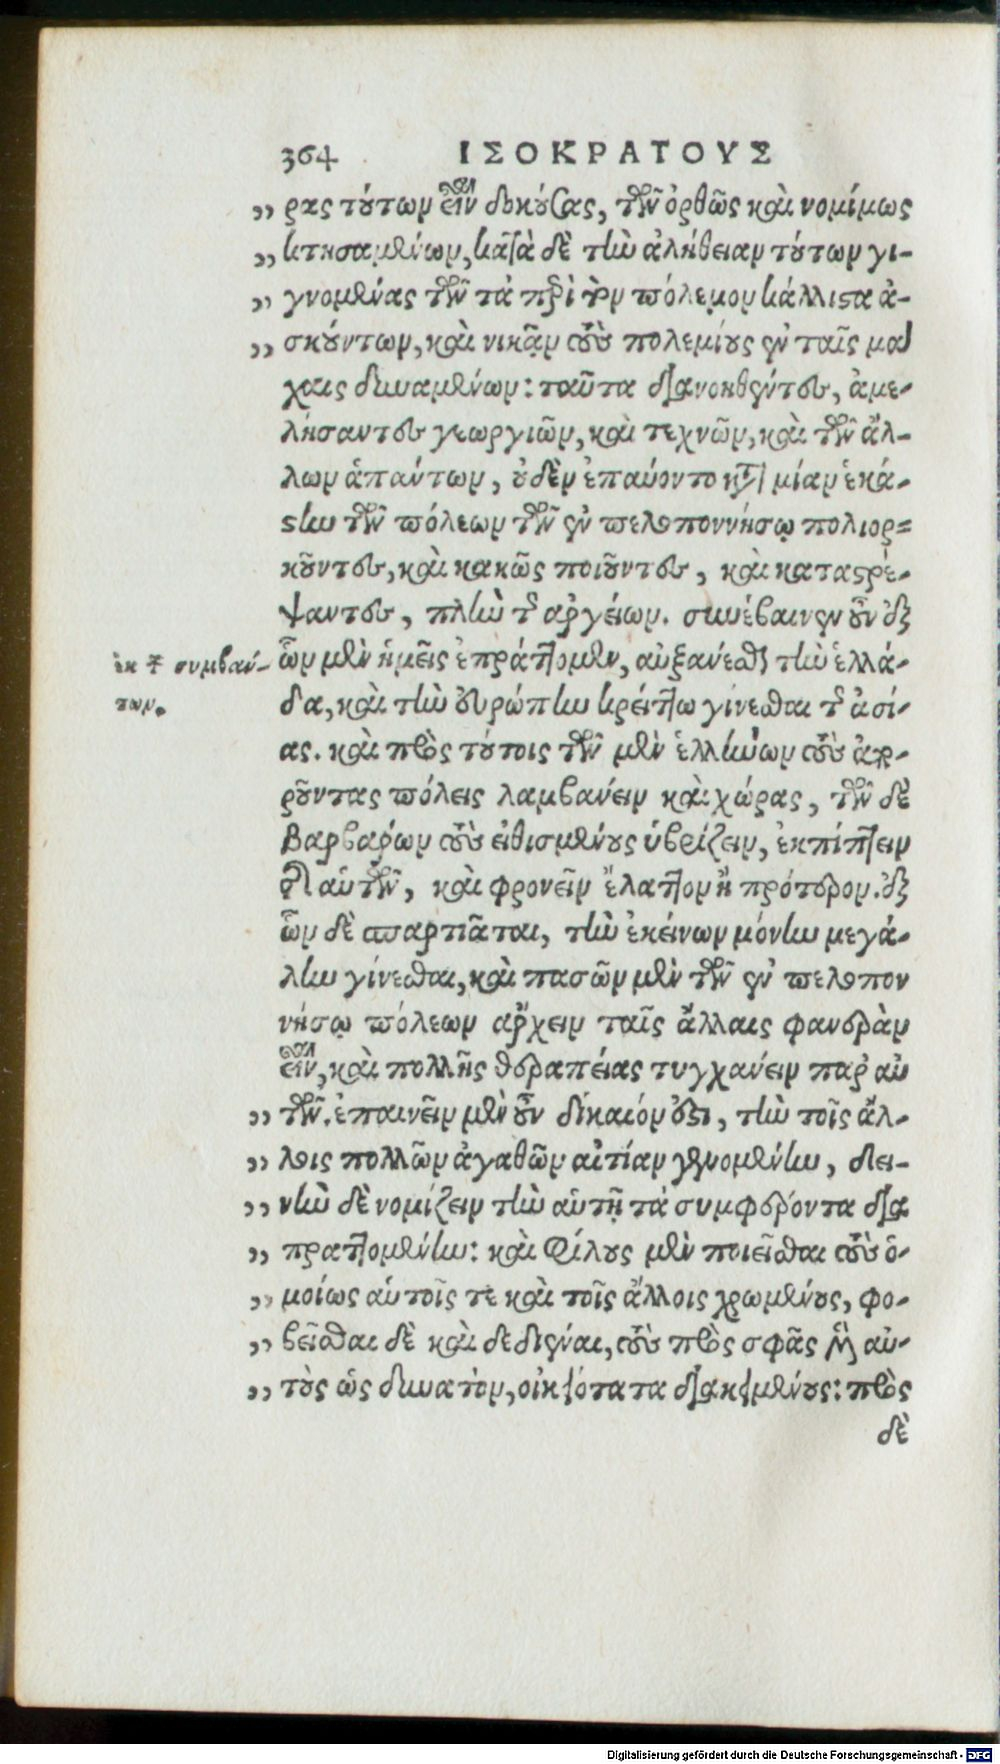 364 ΙΣΟΚΡΑΤΟΥΣ
„ ρας τούτων εἶναι δοκούσας, τῶν ὀρθῶς καὶ νομίμως
„ κτησαμένων, κατὰ δὲ τὴν ἀλήθειαν τούτων γι-
„ γνομένας τῶν τὰ περὶ τὸν πόλεμον κάλλιστα ἀ-
„ σκούντων, καὶ νικᾷν τοὺς πολεμίους ἐν ταῖς μα
χαις δυναμένων: ταῦτα διανοηθέντες, ἀμε-
λήσαντες γεωργιῶν, καὶ τεχνῶν, καὶ τῶν ἄλ-
λων ἁπάντων, οὐδὲν ἐπαύοντο κατὰ μίαν ἑκά-
στην τῶν πόλεων τῶν ἐν πελοποννήσῳ πολιορ-
κοῦντες, καὶ κακῶς ποιοῦντες, καὶ καταστρέ-
ψαντες, πλὴν τῆς ἀργείων. συνέβαινεν οὖν ἐξ
ὧν μὲν ἡμεῖς ἐπράττομεν, αὐξάνεσθαι τὴν ἑλλά-
δα, καὶ τὴν εὐρώπην κρείττω γίνεσθαι τῆς ἀσί-
ας. καὶ πρὸς τούτοις τῶν μὲν ἑλλήνων τοὺς ἀπο-
ροῦντας πόλεις λαμβάνειν καὶ χώρας, τῶν δὲ
βαρβάρων τοὺς εἰθισμένους ὑβρίζειν, ἐκπίπτειν
ἐκ τῆς αὑτῶν, καὶ φρονεῖν ἔλαττον ἢ πρότερον. ἐξ
ὧν δὲ σπαρτιᾶται, τὴν ἐκείνων μόνην μεγά-
λην γίνεσθαι, καὶ πασῶν μὲν τῶν ἐν πελοπον
νήσῳ πόλεων ἄρχειν ταῖς ἄλλαις φανερὰν
εἶναι, καὶ πολλῆς θεραπείας τυγχάνειν παρ᾽ αὐ
„ τῶν. ἐπαινεῖν μὲν οὖν δίκαιόν ἐστι, τὴν τοῖς ἄλ-
„ λοις πολλῶν ἀγαθῶν αἰτίαν γεγενομένην, δει-
„ νὴν δὲ νομίζειν τὴν αὑτῇ τὰ συμφέροντα δια
„ πραττομένην: καὶ φίλους μὲν ποιεῖσθαι τοὺς ὁ-
„ μοίως αὑτοῖς τε καὶ τοῖς ἄλλοις χρωμένους, φο-
„ βεῖσθαι δὲ καὶ δεδιέναι, τοὺς πρὸς σφᾶς μὲν αὐ-
„ τοὺς ὡς δυνατὸν, οἰκειότατα διακειμένους: πρὸς
δὲ
ἐκ τῶν συμβάν-
των.
Digitalisierung gefördert durch die Deutsche Forschungsgemeinschaft - DFG